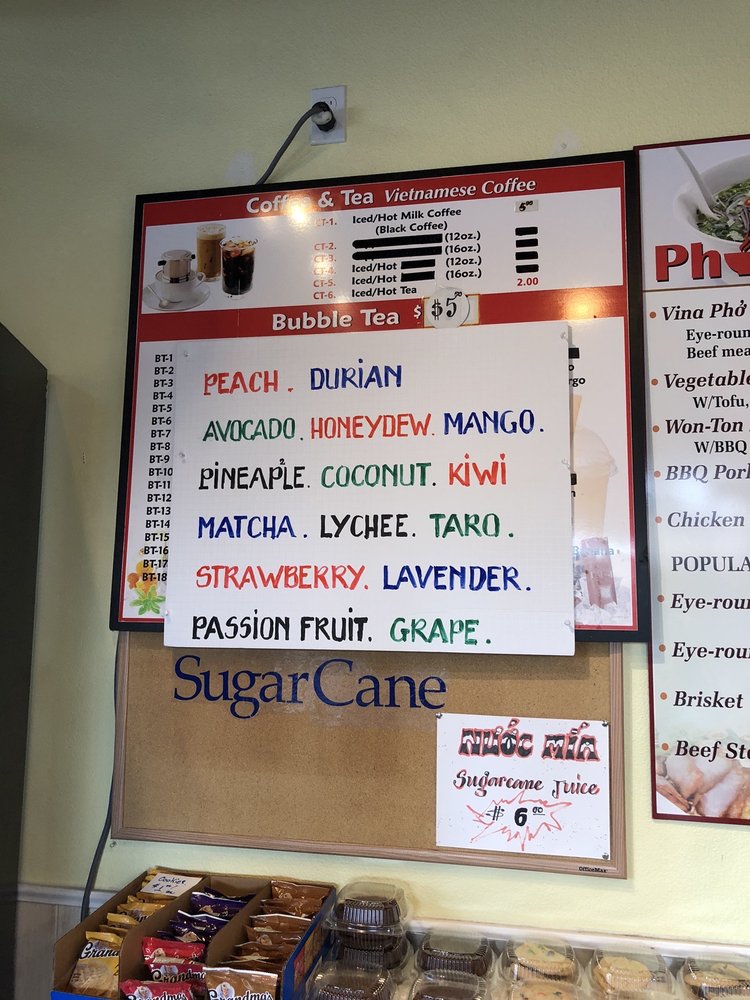 Coffee & Tea Vietnamese Coffee
CT-1. Iced/Hot Milk Coffee 5.00
(Black Coffee)
CT-2. (12oz.)
CT-3. (16oz.)
CT-4. Iced/Hot (12oz.)
CT-5. Iced/Hot (16oz.)
CT-6. Iced/Hot Tea 2.00
Bubble Tea $ $5.00
BT-1
BT-2
BT-3
BT-4
BT-5
BT-6
BT-7
BT-8
BT-9
BT-10
BT-11
BT-12
BT-13
BT-14
BT-15
BT-16
BT-17
BT-18
PEACH. DURIAN
AVOCADO. HONEYDEW. MANGO.
PINEAPLE. COCONUT. KIWI
MATCHA. LYCHEE. TARO.
STRAWBERRY. LAVENDER.
PASSION FRUIT. GRAPE.
SugarCane
NƯỚC MÍA
Sugarcane Juice
$ 6.00
OfficeMax
Ph
• Vina Phở
Eye-roun
Beef mea
• Vegetable
W/Tofu,
• Won-Ton
W/BBQ
• BBQ Pork
• Chicken
POPULA
• Eye-roun
• Eye-roun
• Brisket
• Beef Ste
Cookies
Grandma's
Grandma's
Grandma's